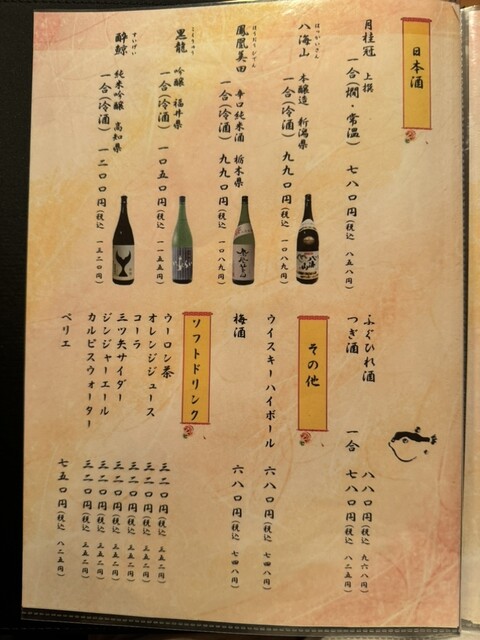 日本酒
月桂冠 上撰
一合(燗・常温) 七八〇円(税込 八五八円)
はっかいさん
八海山 本醸造 新潟県
一合(冷酒) 九九〇円(税込 一〇八九円)
ほうおうびでん
鳳凰美田 辛口純米酒 栃木県
一合(冷酒) 九九〇円(税込 一〇八九円)
こくりゅう
黒龍 吟醸 福井県
一合(冷酒) 一〇五〇円(税込 一一五五円)
すいげい
酔鯨 純米吟醸 高知県
一合(冷酒) 一二〇〇円(税込 一三二〇円)
ふぐひれ酒 八八〇円(税込 九六八円)
つぎ酒 一合 七八〇円(税込 八二五円)
その他
ウイスキーハイボール 六八〇円(税込 七四八円)
梅酒 六八〇円(税込 七四八円)
ソフトドリンク
ウーロン茶 三二〇円(税込 三五二円)
オレンジジュース 三二〇円(税込 三五二円)
コーラ 三二〇円(税込 三五二円)
三ツ矢サイダー 三二〇円(税込 三五二円)
ジンジャーエール 三二〇円(税込 三五二円)
カルピスウォーター 三二〇円(税込 三五二円)
ペリエ 七五〇円(税込 八二五円)
八海山